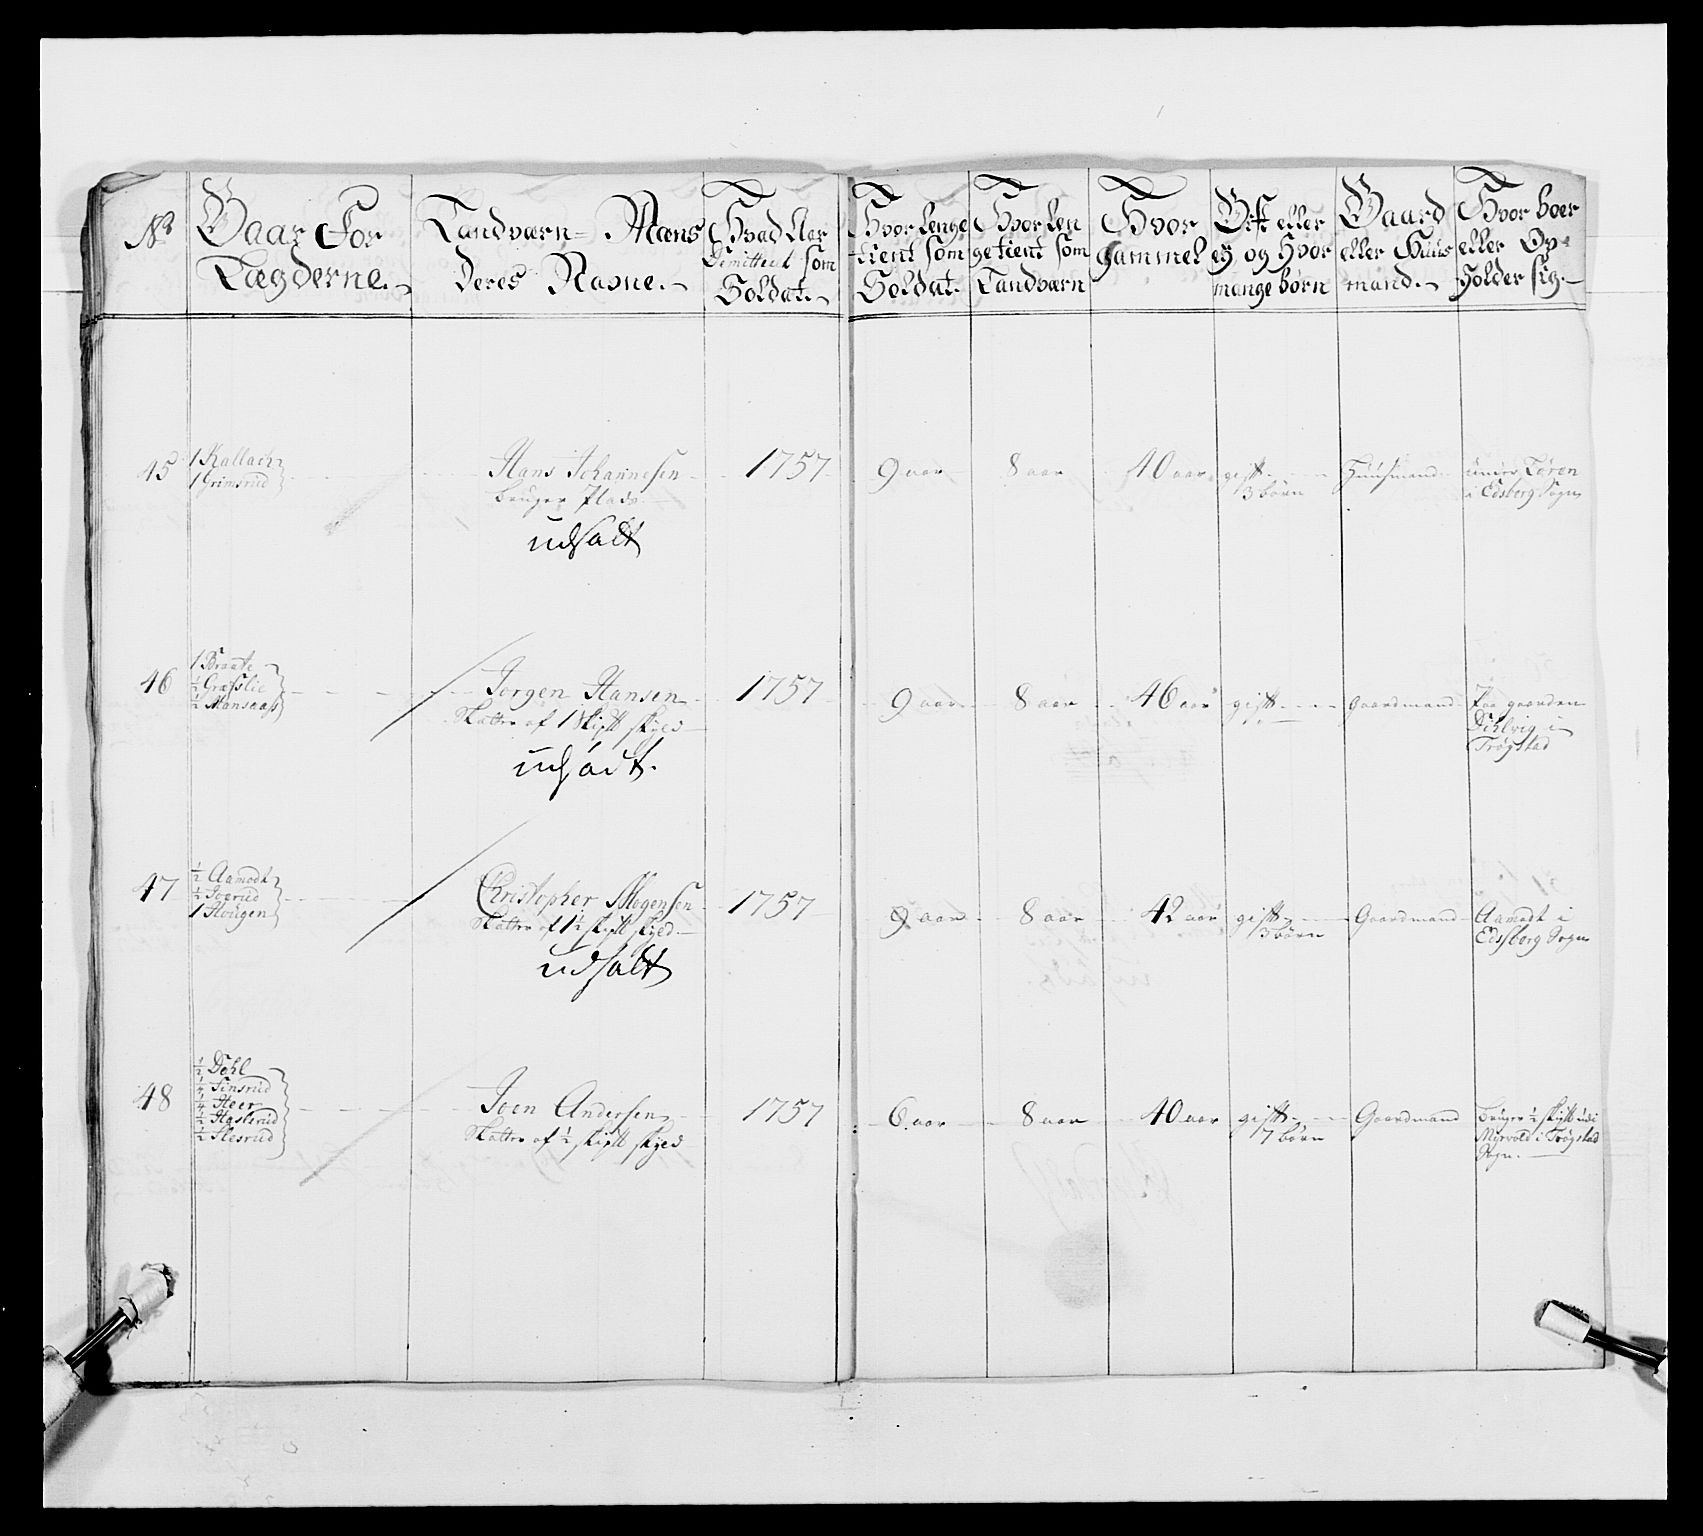 No
Gaar For
Lægderne.
Landværn= Mæns
Deres Navne.
Hvad Aar
Demitteret som
Soldat.
Hvor lenge
tient som
Soldat.
Hvor len
ge tient som
Landværn
Hvor
gammel
Gift eller
ej og Hvor
mange børn
Gaard
eller Huus
mand.
Hvor boer
eller Op=
Holder sig.
45
1 Kallach
1 Grimsrud
Hans Johannesen
bruger Plads
udsatt
1757
9 aar
8 aar
40 aar
gift
3 børn
Huusmand
under Tøren
i Edsberg Sogn
46
1 Braate
½ Græsslie
½ Mansaass
Jørgen Hansen
Skatter af 1 Skipd skyld
udsadt.
1757
9 aar
8 aar
46 aar
gift
gaardmand
Paa gaarden
Dihlvig i
Trøgstad
47
½ Aamodt
½
1 Hougen
Christopher Mogensen
Skatter af 1½ skipd skyld
udsatt
1757
9 aar
8 aar
42 aar
gift
3 børn
Gaardmand
Aamodt i
Edsberg Sogn
48
½ Dehl
¼ Finsrud
¼ Heer
½ Haslerud
½ Slesrud
Joen Andersen
Skatter af ½ skipd skyld
1757
6 aar
8 aar
40 aar
gift
7 børn
Gaardmand
bruger ½ skipd udi
Myrvold i Trøgstad
Sogn.